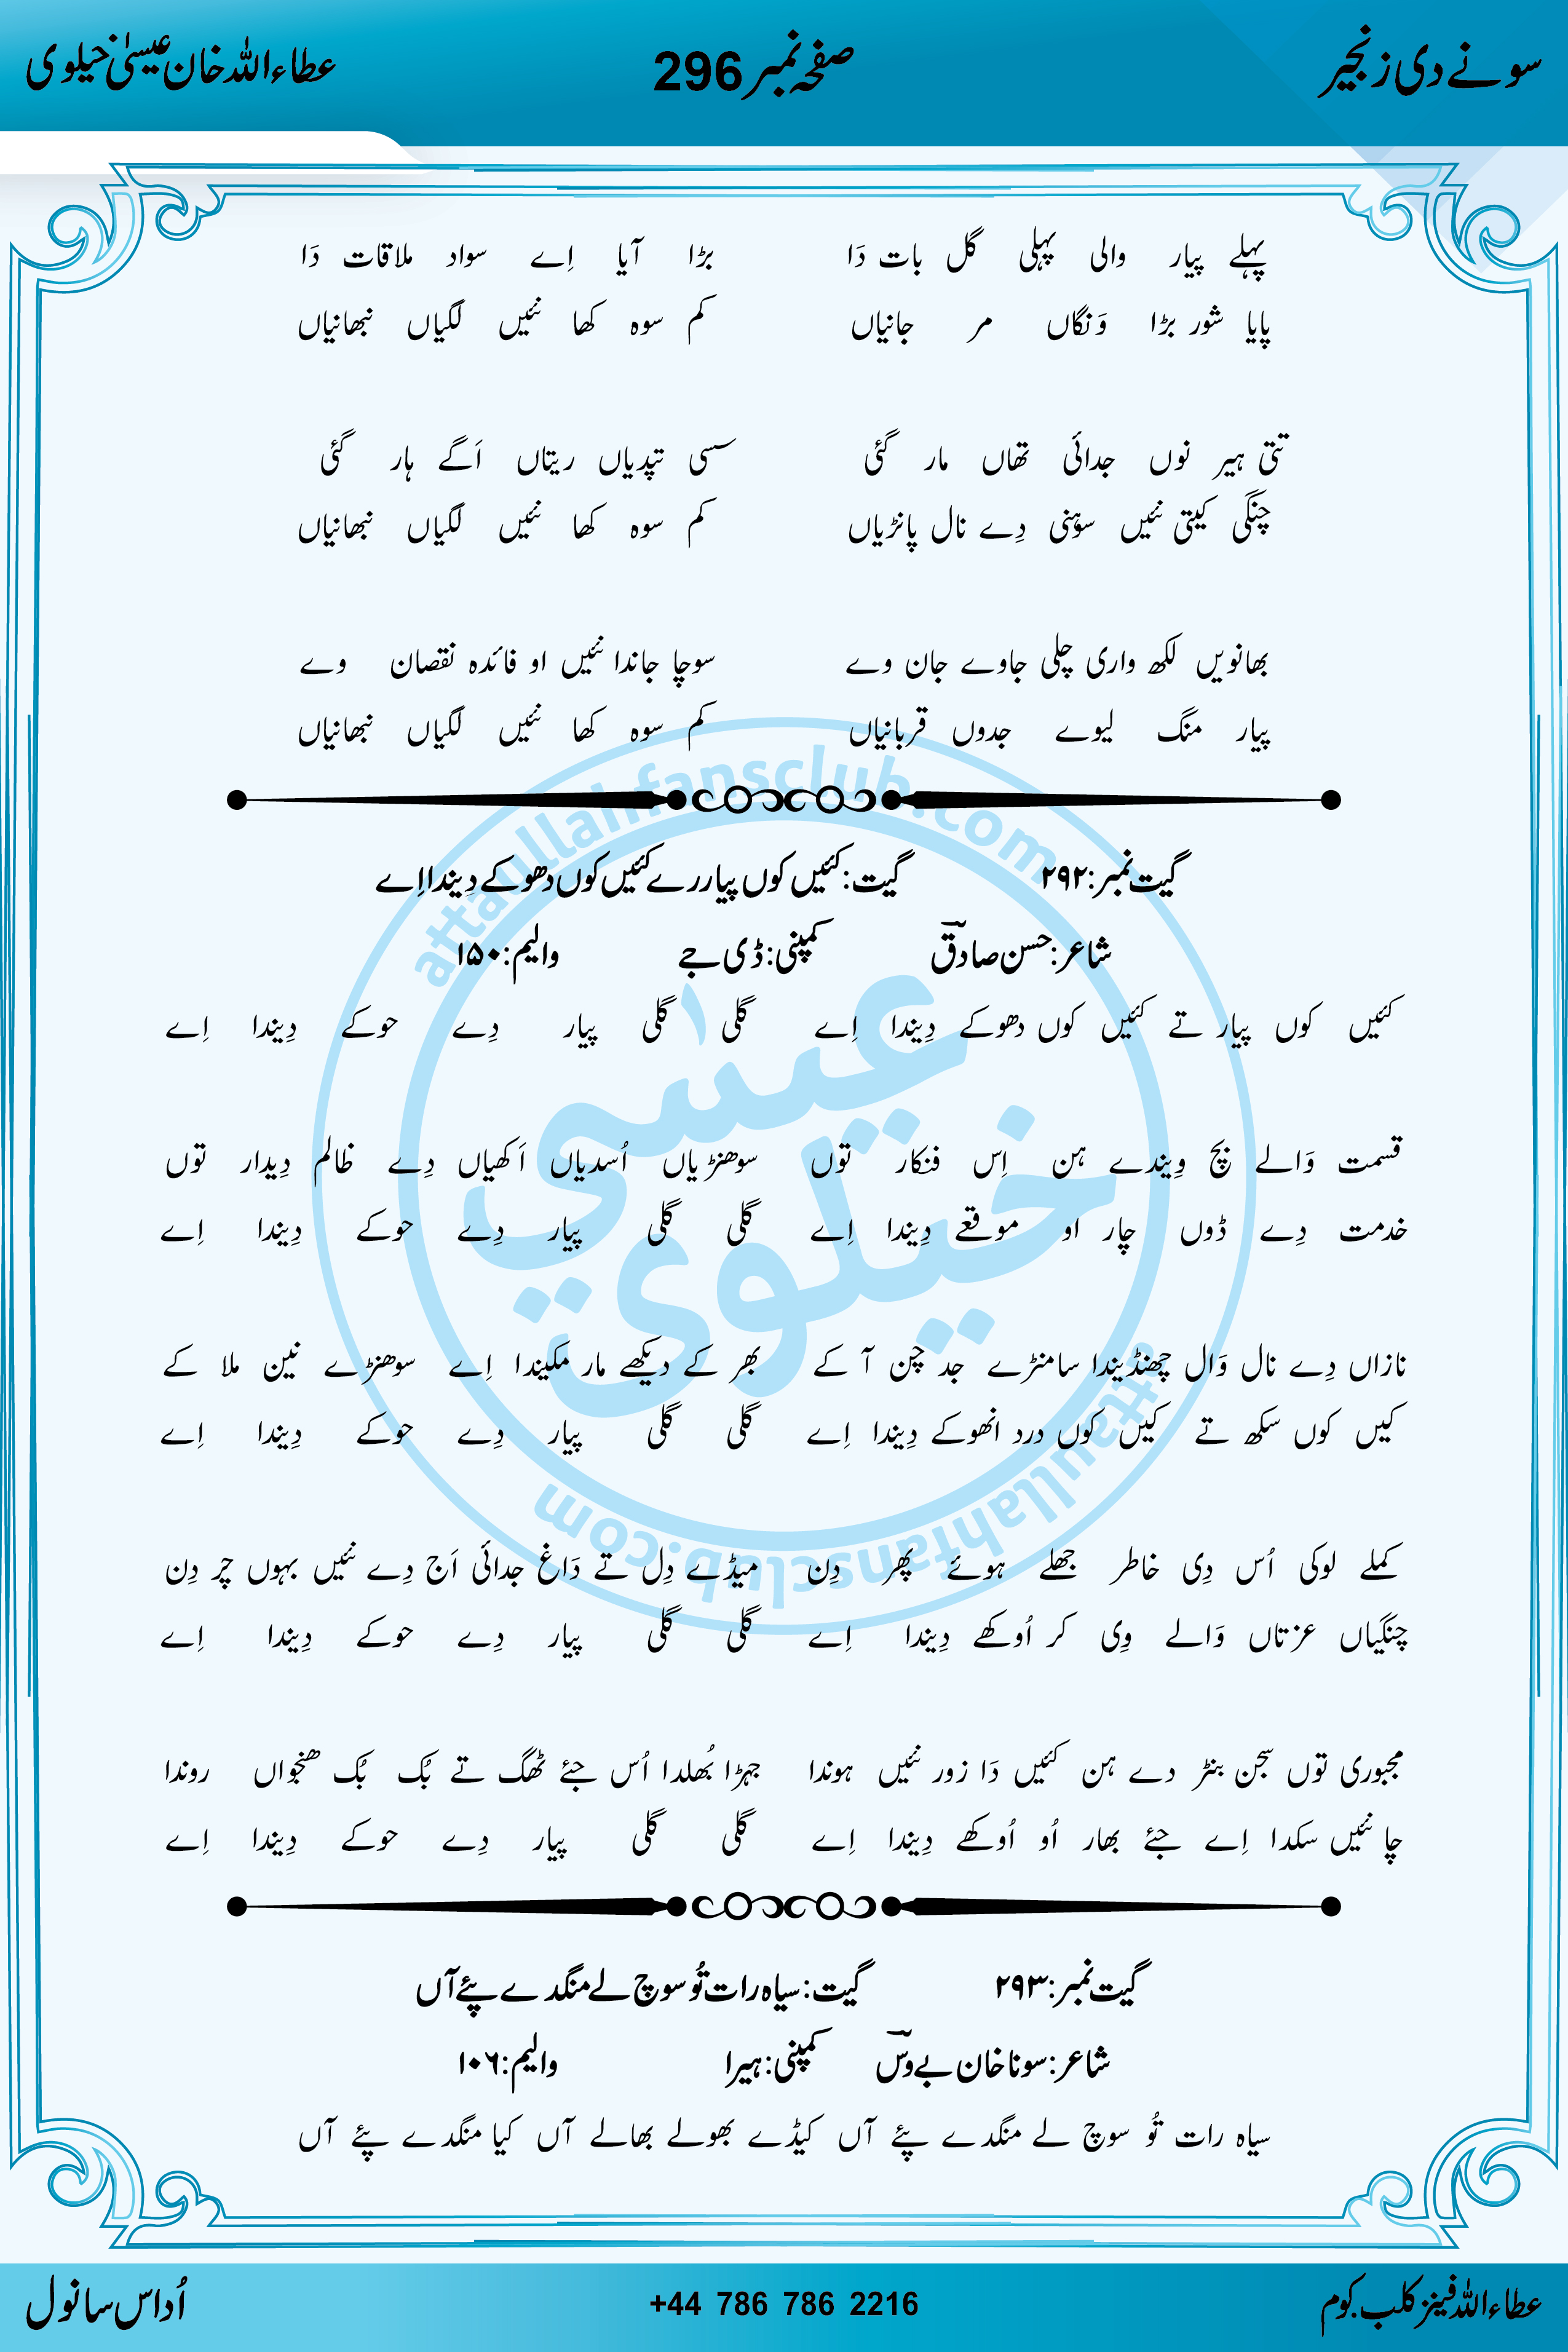 سونے دی زنجیر صفحہ نمبر 296 عطاءاللہ خان عیسیٰ خیلوی
پہلے پیار والی پہلی گل بات دَا بڑا آیا اِے سواد ملاقات دَا
پایا شور بڑا وَنگاں مر جانیاں کم سوہ کھا نئیں لگیاں نبھانیاں
تتی ہیر نوں جدائی تھاں مار گئی سسی تپدیاں ریتاں اَگے ہار گئی
چنگی کیتی نئیں سوہنی دِے نال پانڑیاں کم سوہ کھا نئیں لگیاں نبھانیاں
بھانویں لکھ واری چلی جاوے جان وے سوچا جاندا نئیں او فائدہ نقصان وے
پیار منگ لیوے جدوں قربانیاں کم سوہ کھا نئیں لگیاں نبھانیاں
گیت نمبر: ۲۹۲ گیت: کئیں کوں پیار رے کئیں کوں دھوکے دِیندا اِے
شاعر: حسن صادقؔ کمپنی: ڈی جے والیم: ۱۵۰
کئیں کوں پیار تے کئیں کوں دھوکے دِیندا اِے گلی گلی پیار دِے حوکے دِیندا اِے
قسمت وَالے بچ وِیندے ہن اِس فنکار توں سوھنڑیاں اُسدیاں اَکھیاں دِے ظالم دِیدار توں
خدمت دِے ڈوں چار او موقعے دِیندا اِے گلی گلی پیار دِے حوکے دِیندا اِے
نازاں دِے نال وَال چھنڈیندا سامنڑے جد چن آ کے بھر کے دیکھے مار مکیندا اِے سوھنڑے نین ملا کے
کیں کوں سکھ تے کیں کوں درد انھوکے دِیندا اِے گلی گلی پیار دِے حوکے دِیندا اِے
کملے لوکی اُس دِی خاطر جھلے ہوئے پھر دِن میڈے دِل تے دَاغ جدائی اَج دِے نئیں بہوں چر دِن
چنگیاں عزتاں وَالے وِی کر اُوکھے دِیندا اِے گلی گلی پیار دِے حوکے دِیندا اِے
مجبوری توں سجن بنڑ دے ہن کئیں دَا زور نئیں ہوندا جہڑا بُھلدا اُس جئے ٹھگ تے بُک بُک ھنجواں روندا
چا نئیں سکدا اِے جئے بھار اُو اُوکھے دِیندا اِے گلی گلی پیار دِے حوکے دِیندا اِے
گیت نمبر: ۲۹۳ گیت: سیاہ رات تُو سوچ لے منگدے پئے آں
شاعر: سونا خان بے وسؔ کمپنی: ہیرا والیم: ۱۰۶
سیاہ رات تُو سوچ لے منگدے پئے آں کیڈے بھولے بھالے آں کیا منگدے پئے آں
attaullahfansclub.com
عیسٰی
خیلوی
attaullahfansclub.com
عطاءاللہ فینز کلب.کوم +44 786 786 2216 اُداس سانول